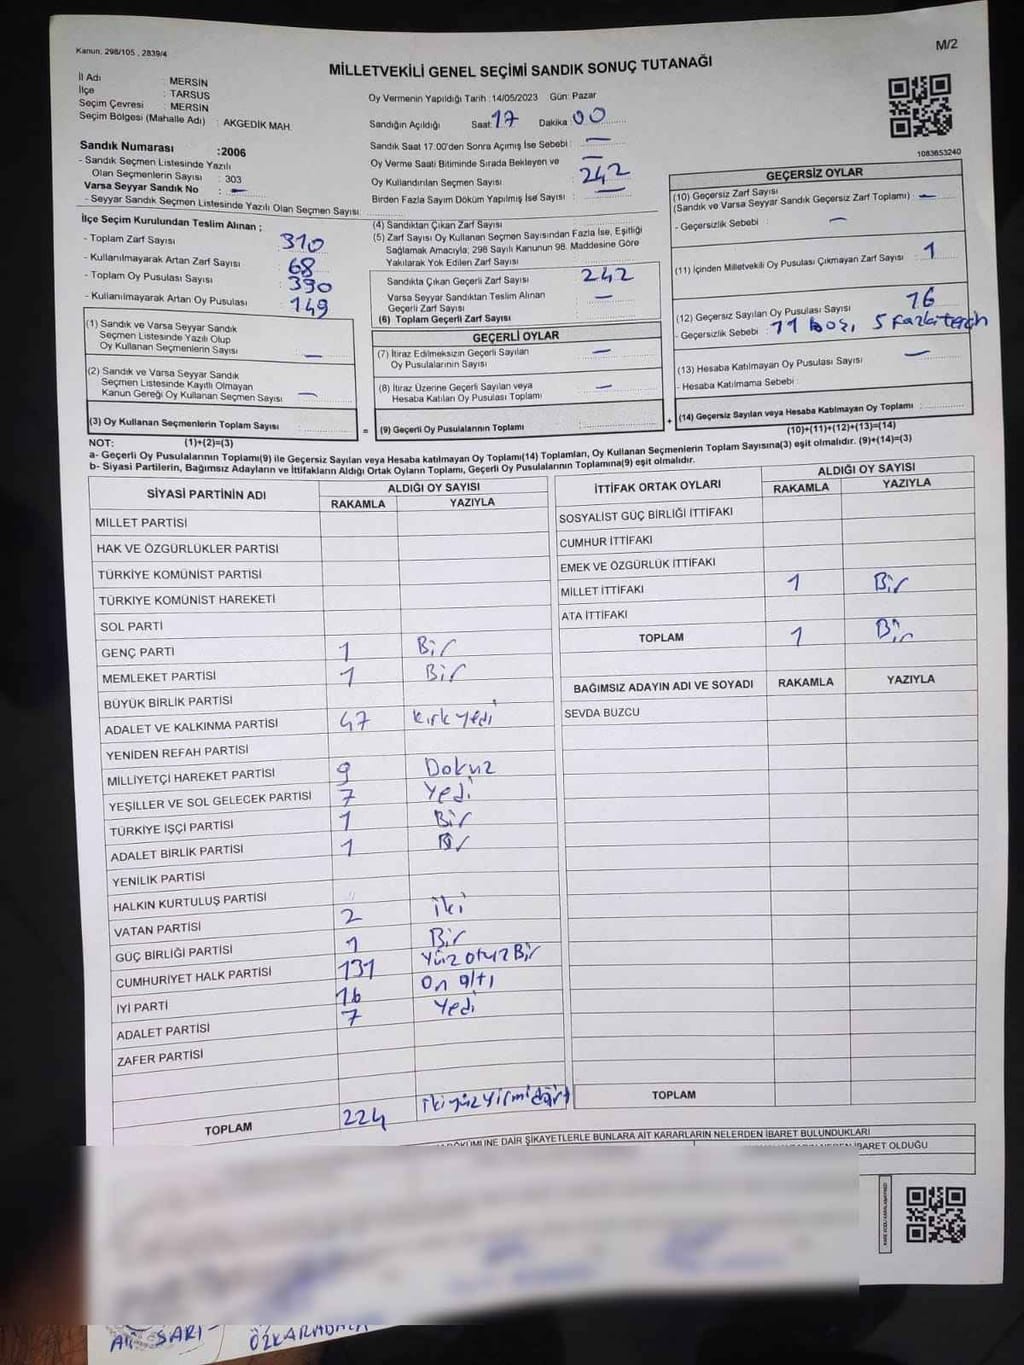 Kanun: 298/105 , 2839/4
M/2
MİLLETVEKİLİ GENEL SEÇİMİ SANDIK SONUÇ TUTANAĞI
İl Adı : MERSİN
İlçe : TARSUS
Seçim Çevresi : MERSİN
Seçim Bölgesi (Mahalle Adı) : AKGEDİK MAH.
Sandık Numarası :2006
- Sandık Seçmen Listesinde Yazılı
Olan Seçmenlerin Sayısı : 303
Varsa Seyyar Sandık No : —
- Seyyar Sandık Seçmen Listesinde Yazılı Olan Seçmen Sayısı:
Oy Vermenin Yapıldığı Tarih : 14/05/2023 Gün: Pazar
Sandığın Açıldığı Saat: 17 Dakika : 00
Sandık Saat 17.00'den Sonra Açımış İse Sebebi : —
Oy Verme Saati Bitiminde Sırada Bekleyen ve —
Oy Kullandırılan Seçmen Sayısı : 242
Birden Fazla Sayım Döküm Yapılmış İse Sayısı : —
1083653240
İlçe Seçim Kurulundan Teslim Alınan ;
- Toplam Zarf Sayısı : 310
- Kullanılmayarak Artan Zarf Sayısı : 68
- Toplam Oy Pusulası Sayısı : 390
- Kullanılmayarak Artan Oy Pusulası : 149
(1) Sandık ve Varsa Seyyar Sandık
Seçmen Listesinde Yazılı Olup
Oy Kullanan Seçmenlerin Sayısı : —
(2) Sandık ve Varsa Seyyar Sandık
Seçmen Listesinde Kayıtlı Olmayan
Kanun Gereği Oy Kullanan Seçmen Sayısı : —
(3) Oy Kullanan Seçmenlerin Toplam Sayısı :
(4) Sandıktan Çıkan Zarf Sayısı :
(5) Zarf Sayısı Oy Kullanan Seçmen Sayısından Fazla İse, Eşitliği
Sağlamak Amacıyla; 298 Sayılı Kanunun 98. Maddesine Göre
Yakılarak Yok Edilen Zarf Sayısı :
Sandıkta Çıkan Geçerli Zarf Sayısı : 242
Varsa Seyyar Sandıktan Teslim Alınan
Geçerli Zarf Sayısı : —
(6) Toplam Geçerli Zarf Sayısı :
GEÇERLİ OYLAR
(7) İtiraz Edilmeksizin Geçerli Sayılan
Oy Pusulalarının Sayısı : —
(8) İtiraz Üzerine Geçerli Sayılan veya
Hesaba Katılan Oy Pusulası Toplamı : —
= (9) Geçerli Oy Pusulalarının Toplamı :
GEÇERSİZ OYLAR
(10) Geçersiz Zarf Sayısı
(Sandık ve Varsa Seyyar Sandık Geçersiz Zarf Toplamı) : —
- Geçersizlik Sebebi : —
(11) İçinden Milletvekili Oy Pusulası Çıkmayan Zarf Sayısı : 1
(12) Geçersiz Sayılan Oy Pusulası Sayısı : 16
- Geçersizlik Sebebi : 11 boş, 5 fazla tercih
(13) Hesaba Katılmayan Oy Pusulası Sayısı : —
- Hesaba Katılmama Sebebi :
+ (14) Geçersiz Sayılan veya Hesaba Katılmayan Oy Toplamı :
NOT: (1)+(2)=(3)
(10)+(11)+(12)+(13)=(14)
a- Geçerli Oy Pusulalarının Toplamı(9) ile Geçersiz Sayılan veya Hesaba katılmayan Oy Toplamı(14) Toplamları, Oy Kullanan Seçmenlerin Toplam Sayısına(3) eşit olmalıdır. (9)+(14)=(3)
b- Siyasi Partilerin, Bağımsız Adayların ve İttifakların Aldığı Ortak Oyların Toplamı, Geçerli Oy Pusulalarının Toplamına(9) eşit olmalıdır.
SİYASİ PARTİNİN ADI ALDIĞI OY SAYISI
RAKAMLA YAZIYLA
MİLLET PARTİSİ
HAK VE ÖZGÜRLÜKLER PARTİSİ
TÜRKİYE KOMÜNİST PARTİSİ
TÜRKİYE KOMÜNİST HAREKETİ
SOL PARTİ
GENÇ PARTİ 1 Bir
MEMLEKET PARTİSİ 1 Bir
BÜYÜK BİRLİK PARTİSİ
ADALET VE KALKINMA PARTİSİ 47 Kırk yedi
YENİDEN REFAH PARTİSİ
MİLLİYETÇİ HAREKET PARTİSİ 9 Dokuz
YEŞİLLER VE SOL GELECEK PARTİSİ 7 Yedi
TÜRKİYE İŞÇİ PARTİSİ 1 Bir
ADALET BİRLİK PARTİSİ 1 Bir
YENİLİK PARTİSİ
HALKIN KURTULUŞ PARTİSİ
VATAN PARTİSİ 2 iki
GÜÇ BİRLİĞİ PARTİSİ 1 Bir
CUMHURİYET HALK PARTİSİ 131 Yüz otuz Bir
İYİ PARTİ 16 On altı
ADALET PARTİSİ 7 Yedi
ZAFER PARTİSİ
TOPLAM 224 iki yüz yirmi dört
İTTİFAK ORTAK OYLARI ALDIĞI OY SAYISI
RAKAMLA YAZIYLA
SOSYALİST GÜÇ BİRLİĞİ İTTİFAKI
CUMHUR İTTİFAKI
EMEK VE ÖZGÜRLÜK İTTİFAKI
MİLLET İTTİFAKI 1 Bir
ATA İTTİFAKI
TOPLAM 1 Bir
BAĞIMSIZ ADAYIN ADI VE SOYADI RAKAMLA YAZIYLA
SEVDA BUZCU
TOPLAM
DÖKÜMÜNE DAİR ŞİKAYETLERLE BUNLARA AİT KARARLARIN NELERDEN İBARET BULUNDUKLARI
İBARET OLDUĞU
Ali SARI